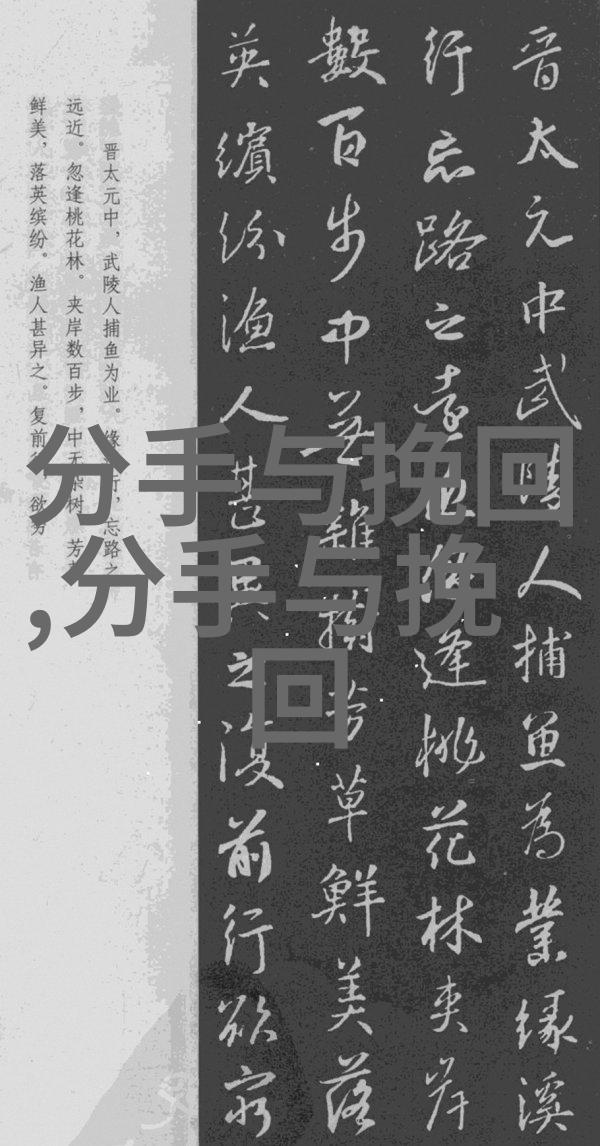 晉太元中武陵人捕魚為業緣溪
行忘路之遠近忽逢桃花林夾岸
數百步中無雜樹芳草鮮美落
英繽紛漁人甚異之復前行欲窮
晋太元中，武陵人捕鱼为业。缘溪行，忘路之
远近。忽逢桃花林。夹岸数百步，中无杂树，芳草
鲜美，落英缤纷。渔人甚异之。复前行，欲穷
分手与挽回
,分手与挽
回